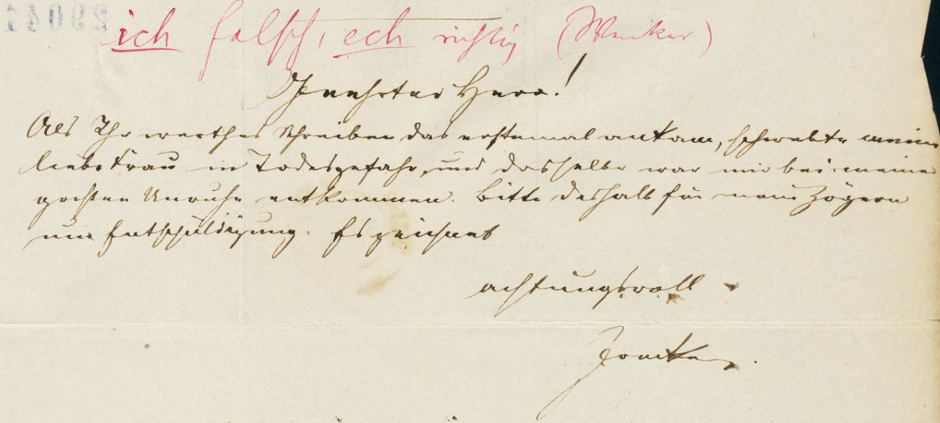 29041
ich falsch, ech richtig (Wenker)
Geehrter Herr!
Als Ihr werthes Schreiben das erstemal ankam, schwebte meine
liebe Frau in Todesgefahr, und dasselbe war mir bei meiner
großen Unruhe entkommen. Bitte deshalb für mein Zögern
um Entschuldigung. Es zeichnet
achtungsvoll